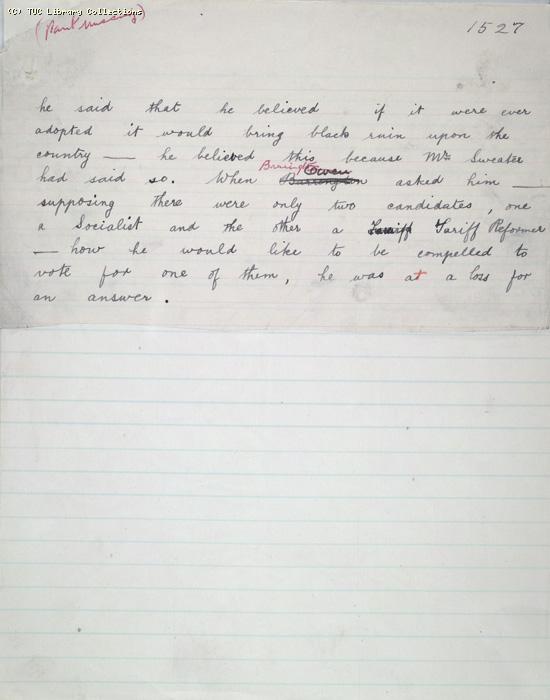 (C) TUC Library Collections
(Part missing)
1527
he said that he believed if it were ever
adopted it would bring black ruin upon the
country — he believed this because Mr Sweater
had said so. When Barrington Owen asked him —
supposing there were only two candidates, one
a Socialist and the other a Tariff Tariff Reformer
— how he would like to be compelled to
vote for one of them, he was at a loss for
an answer.